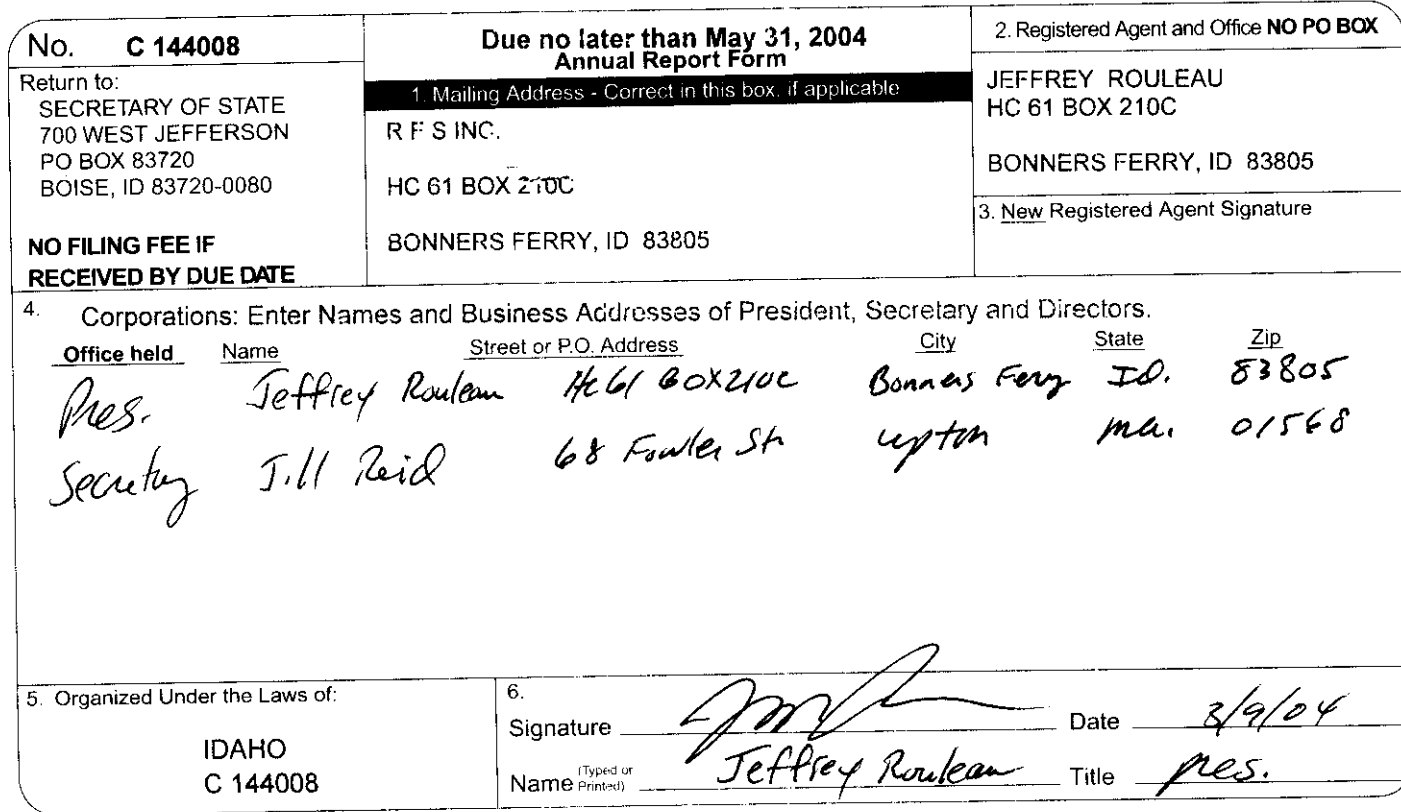 No. C 144008
Return to:
SECRETARY OF STATE
700 WEST JEFFERSON
PO BOX 83720
BOISE, ID 83720-0080
NO FILING FEE IF
RECEIVED BY DUE DATE
Due no later than May 31, 2004
Annual Report Form
1. Mailing Address - Correct in this box, if applicable
R F S INC.
HC 61 BOX 210C
BONNERS FERRY, ID 83805
2. Registered Agent and Office NO PO BOX
JEFFREY ROULEAU
HC 61 BOX 210C
BONNERS FERRY, ID 83805
3. New Registered Agent Signature
4. Corporations: Enter Names and Business Addresses of President, Secretary and Directors.
Office held Name Street or P.O. Address City State Zip
Pres. Jeffrey Rouleau Hc 61 BOX 210C Bonners Ferry ID. 83805
Secretary Jill Reid 68 Fowler St upton ma. 01568
5. Organized Under the Laws of:
IDAHO
C 144008
6.
Signature Date 3/9/04
Name (Typed or Printed) Jeffrey Rouleau Title pres.